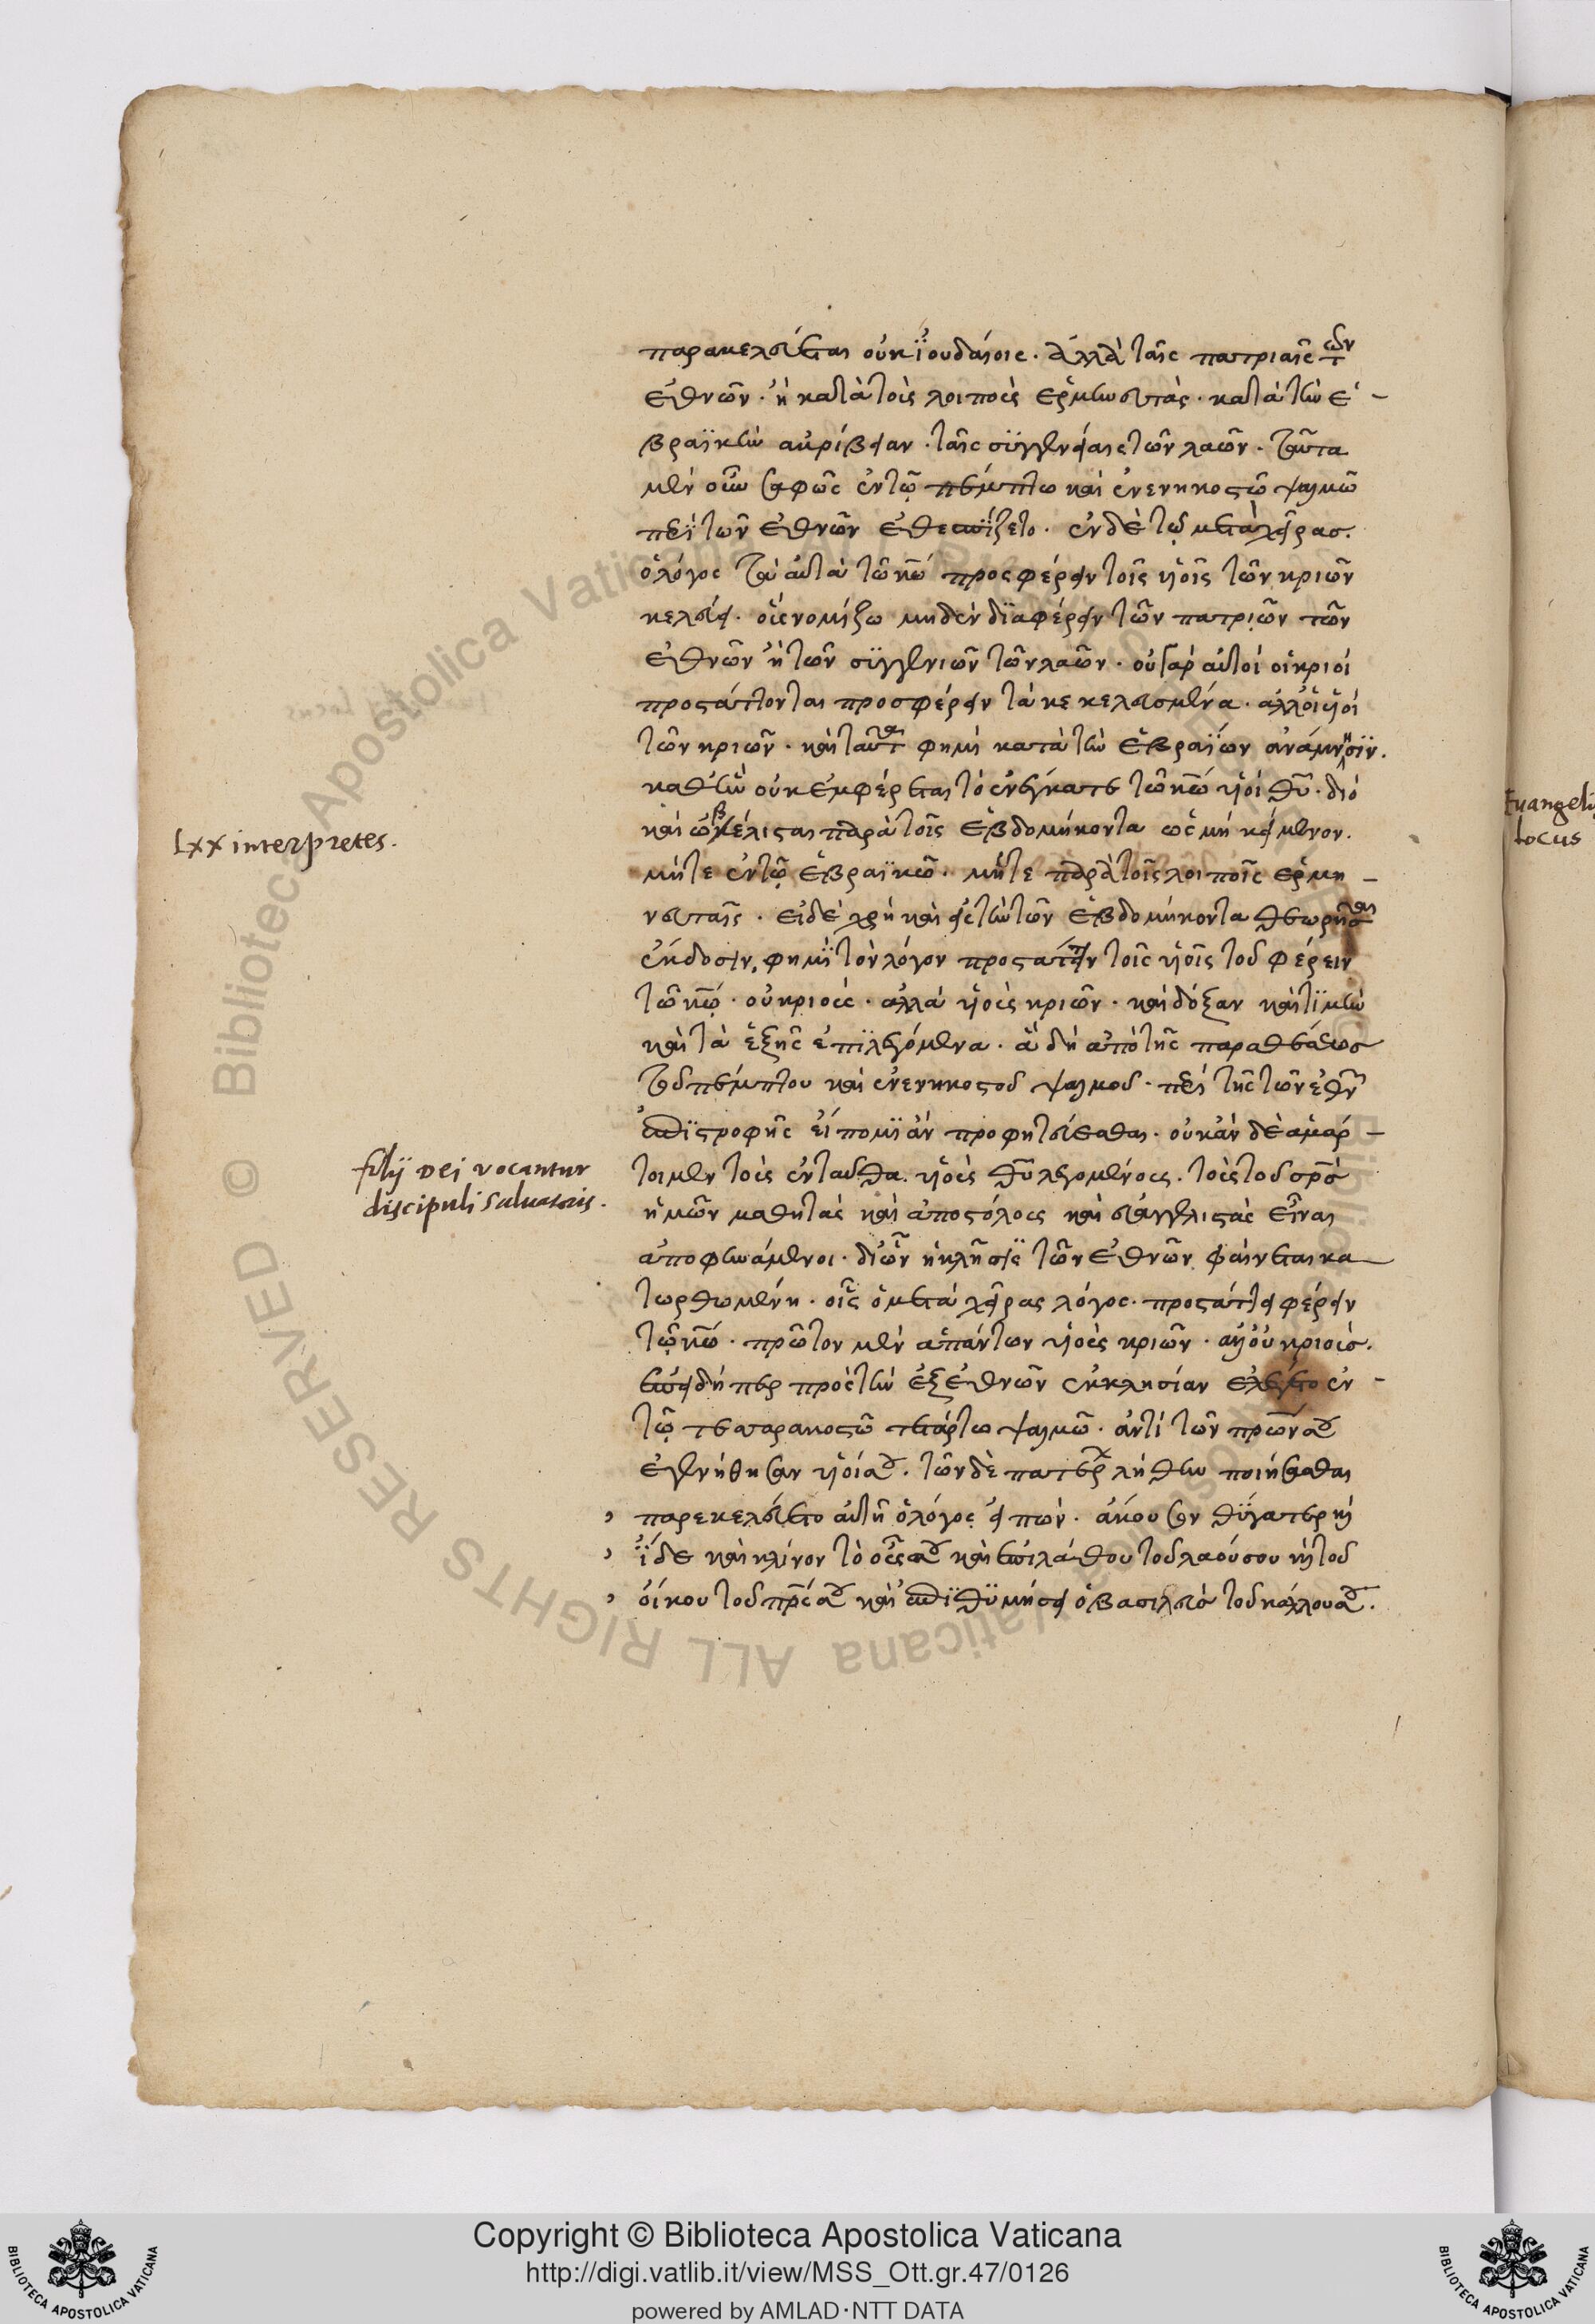 παρακελεύεται οὐκ ἰουδαίοις. ἀλλὰ ταῖς πατριαῖς τῶν
ἐθνῶν. ἢ κατὰ τοὺς λοιποὺς ἑρμηνευτὰς. κατὰ τὴν ἑ-
βραϊκὴν ἀκρίβειαν. ταῖς συγγενείαις τῶν λαῶν. ταῦτα
μὲν οὖν σαφῶς ἐν τῷ πέμπτω καὶ ἐνενηκοστῶ ψαλμῶ
περὶ τῶν ἐθνῶν ἐθεσπίζετο. ἐν δὲ τῷ μετὰ χεῖρας.
ὁ λόγος τὰ αὐτὰ τῶ κω προσφέρειν τοῖς υἱοῖς τῶν κριῶν
κελεύει. οὓς νομίζω μηδὲν διαφέρειν τῶν πατριῶν τῶν
ἐθνῶν ἢ τῶν συγγενιῶν τῶν λαῶν. οὐ γὰρ αὐτοὶ οἱ κριοὶ
προστάττονται προσφέρειν τὰ κεκελευσμένα. ἀλλ' οἱ υἱοὶ
τῶν κριῶν. καὶ ταῦτα φημὶ κατὰ τὴν ἑβραίων ἀνάμνησιν.
καθ' ἣν οὐκ ἐμφέρεται τὸ ἐνέγκατε τῶ κω υἱοὶ θυ. διὸ
καὶ ὠβέλισται παρὰ τοῖς ἑβδομήκοντα ὡς μὴ κείμενον.
μήτε ἐν τῷ ἑβραϊκῶ. μήτε παρὰ τοῖς λοιποῖς ἑρμη-
νευταῖς. εἰ δὲ χρὴ καὶ εἰς τὴν τῶν ἑβδομήκοντα θεωρῆσαι
ἔκδοσιν, φημὶ τὸν λόγον προστάττειν τοῖς υἱοῖς τοῦ φέρειν
τῶ κω. οὐ κριοὺς. ἀλλὰ υἱοὺς κριῶν. καὶ δόξαν καὶ τιμὴν
καὶ τὰ ἑξῆς ἐπιλεγόμενα. ἃ δὴ ἀπὸ τῆς παραθέσεως
τοῦ πέμπτου καὶ ἐνενηκοστοῦ ψαλμοῦ. περὶ τῆς τῶν ἐθν
ἐπιστροφῆς εἴποιμι ἂν προφητεύεσθαι. οὐκ ἂν δὲ ἁμάρ-
τοιμεν τοὺς ἐνταῦθα. υἱοὺς θυ λεγομένους. τοὺς τοῦ σρς
ἡμῶν μαθητὰς καὶ ἀποστόλους καὶ εὐαγγελιστὰς εἶναι
ἀποφηνάμενοι. δι' ὧν ἡ κλῆσις τῶν ἐθνῶν φαίνεται κα
τωρθωμένη. οἷς ὁ μετὰ χεῖρας λόγος. προστάττει φέρειν
τῷ κω. πρῶτον μὲν ἁπάντων υἱοὺς κριῶν. ἀλλ' οὐ κριούς.
ἐπειδήπερ πρὸς τὴν ἐξ ἐθνῶν ἐκκλησίαν ἐλέγετο ἐν-
τῷ τεσσαρακοστῶ τετάρτω ψαλμῶ. ἀντὶ τῶν πρων σου
ἐγενήθησαν υἱοί σου. τῶν δὲ πατέρων λήθην ποιήσασθαι
, παρεκελεύετο αὐτῆ ὁ λόγος εἰπών. ἄκουσον θύγατερ καὶ
, ἴδε καὶ κλίνον τὸ οὖς σου καὶ ἐπιλάθου τοῦ λαοῦ σου καὶ τοῦ
, οἴκου τοῦ πρς σου καὶ ἐπιθυμήσει ὁ βασιλεὺς τοῦ κάλλους σου.
Lxx interpretes.
filij Dei vocantur
discipuli Saluatoris.
Euangelij
locus
Copyright © Biblioteca Apostolica Vaticana
http://digi.vatlib.it/view/MSS_Ott.gr.47/0126
powered by AMLAD·NTT DATA
BIBLIOTECA APOSTOLICA VATICANA
BIBLIOTECA APOSTOLICA VATICANA